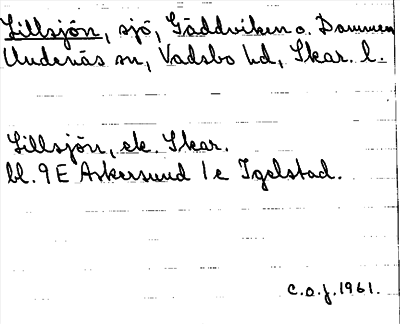 Lillsjön, sjö, Gäddviken o. Dammen
Undenäs sn, Vadsbo hd, Skar. l.
Lillsjön, ek. Skar.
bl. 9E Askersund 1e Igelstad.
C.O.J. 1961.